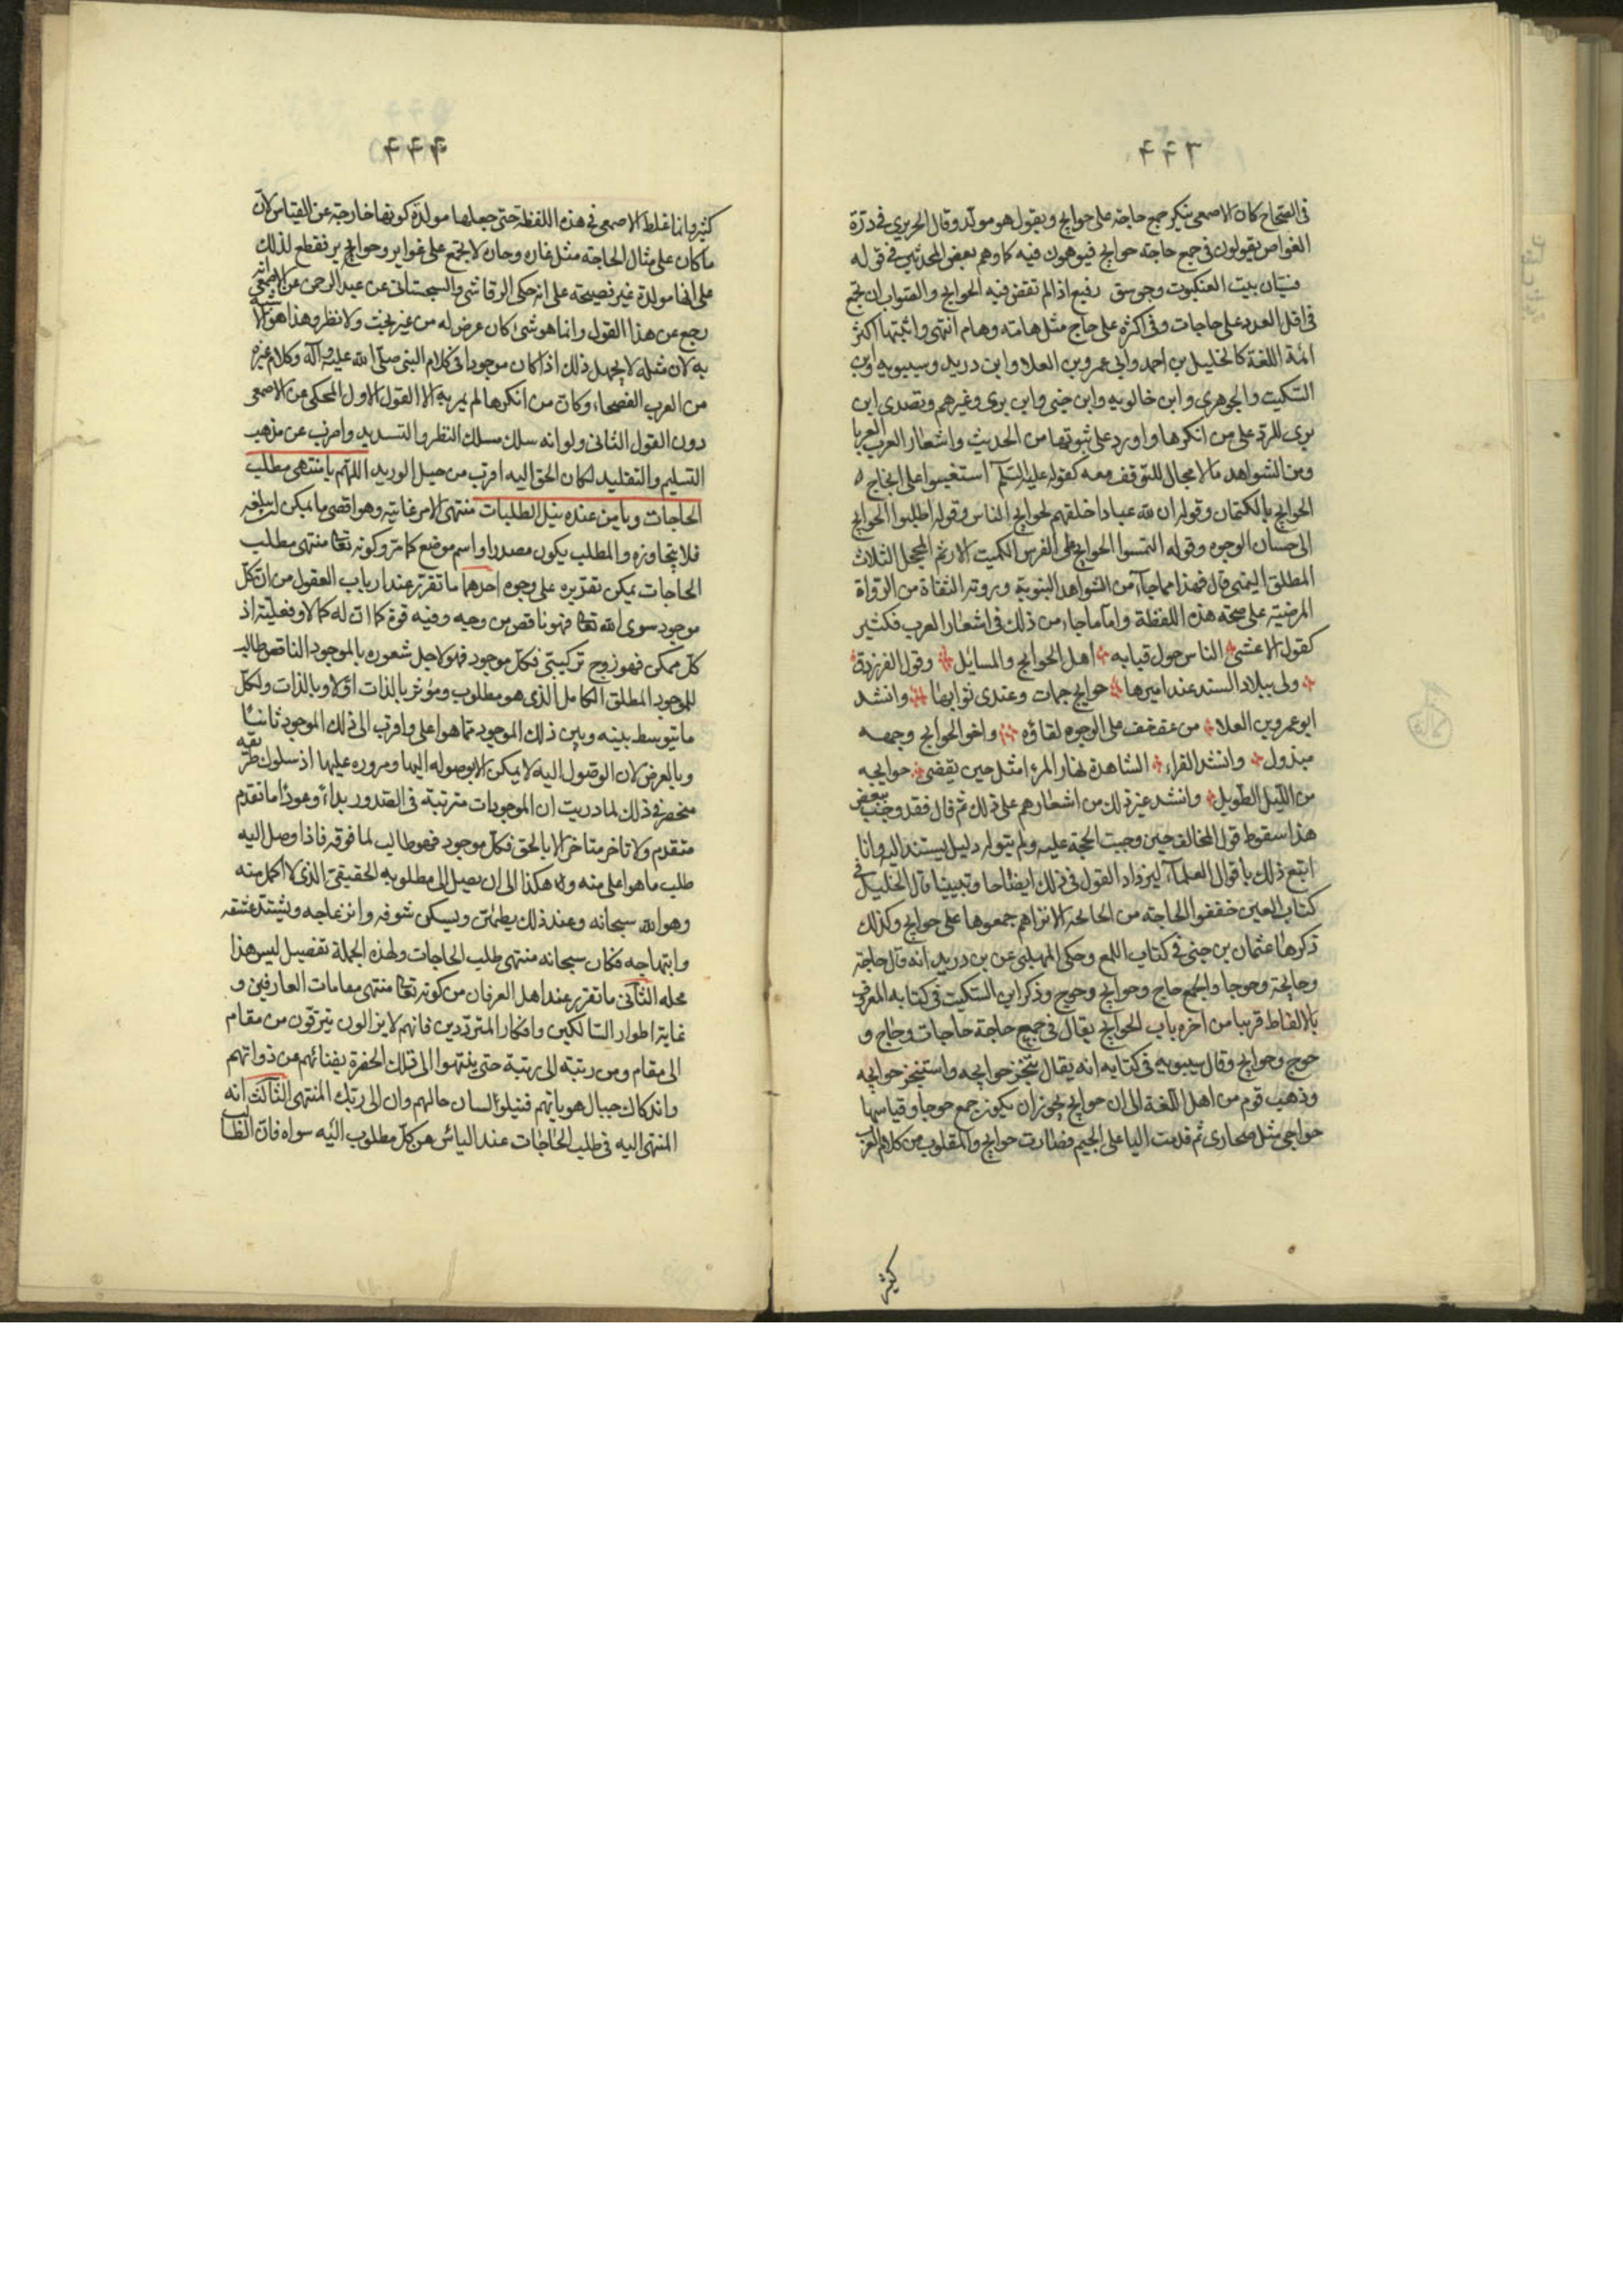 ٤٤٣
في الصحاح كان الاصمعي ينكر جمع حاجة على حوايج ويقول هو مولد وقال الحريري في درة
الغواص يقولون في جمع حاجة حوايج فيوهمون فيه كما وهم بعض المحدثين في قوله
فسيّان بيت العنكبوت وجوسق رفيع اذا لم تقض فيه الحوايج والصواب ان تجمع
في اقل العدد على حاجات وفي اكثره على حاج مثل هامة وهام انتهى واثبتها اكثر
ائمة اللغة كالخليل بن احمد وابي عمرو بن العلا وابن دريد وسيبويه وابن
السّكيت والجوهري وابن خالويه وابن جني وابن بري وغيرهم وتصدى ابن
بري للرد على من انكرها واورد على ثبوتها من الحديث واشعار العرب العربا
ومن الشواهد ما لا مجال للتوقف معه كقوله عليه السلم استعينوا على انجاح
الحوايج بالكتمان وقوله ان لله عبادا خلقهم لحوايج الناس وقوله اطلبوا الحوايج
الى حسان الوجوه وقوله التمسوا الحوايج على الفرس الكميت الارثم المحجل الثلاث
المطلق اليمنى قال فهذا مما جاء من الشواهد النبوية وروته الثقاة من الرواة
المرضية على صحة هذه اللفظة واما ما جاء من ذلك في اشعار العرب فكثير
كقول الاعشى الناس حول قبابه اهل الحوايج والمسايل وقول الفرزدق
ولي ببلاد السند عند اميرها حوايج جمات وعندي ثوابها وانشد
ابو عمرو بن العلا من عف خف على الوجوه لقاؤه واخو الحوايج وجهه
مبذول وانشد الفراء الشاهدة نهار المرء امثل حين يقضي حوايجه
من الليل الطويل وانشد غير ذلك من اشعارهم على ذلك ثم قال فقد وجب ببعض
هذا سقوط قول المخالف حين وجبت الحجة عليه ولم يبق له دليل يستند اليه وانا
اتبع ذلك باقوال العلماء ليزداد القول في ذلك ايضاحا وتبيينا قال الخليل في
كتاب العين خففوا الحاجة من الحائجة الا تراهم جمعوها على حوايج وكذلك
ذكرها عثمان بن جني في كتاب اللمع وحكى المهلبي عن بن دريد انه قال حاجة
وحايجة وحوجا والجمع حاج وحوايج وحوج وذكر ابن السكيت في كتابه المعروف
بالالفاظ قريبا من اخره باب الحوايج يقال في جمع حاجة حاجات وحاج و
حوج وحوايج وقال سيبويه في كتابه انه يقال تنجز حوايجه واستنجز حوايجه
وذهب قوم من اهل اللغة الى ان حوايج يجوز ان يكون جمع حوجا وقياسها
حواجي مثل صحاري ثم قدمت اليا على الجيم فصارت حوايج والمقلوب من كلام العرب
كثير
٤٤٤
كثير وانما غلط الاصمعي في هذه اللفظة حتى جعلها مولدة كونها خارجة عن القياس لان
ما كان على مثال الحاجة مثل غارة وحان لا يجمع على غواير وحوايج ير فقطع لذلك
على انها مولدة غير فصيحة على انه حكى الرقاشي والسجستاني عن عبد الرحمن عن الاصمعي انه
رجع عن هذا القول وانما هو شيء كان عرض له من غير بحث ولا نظر وهذا هو الا
به لان مثله لا يجهل ذلك اذا كان موجودا في كلام النبي صلى الله عليه وآله وكلام غيره
من العرب الفصحاء وكان من انكرها لم يمر به الا القول الاول المحكي عن الاصمعي
دون القول الثاني ولو انه سلك مسلك النظر والتسديد واضرب عن مذهب
التسليم والتقليد لكان الحق اليه اقرب من حبل الوريد اللهم يا منتهى مطلب
الحاجات ويا من عنده نيل الطلبات منتهى الامر غايته وهو اقصى ما يمكن ان يبلغه
فلا يتجاوزه والمطلب يكون مصدرا واسم موضع كما مر وكونه تعالى منتهى مطلب
الحاجات يمكن تقديره على وجوه احدها ما تقرر عند ارباب العقول من ان كل
موجود سوى الله تعالى فهو ناقص من وجه وفيه قوة كما ان له كمالا وفعلية اذ
كل ممكن فهو زوج تركيبي فكل موجود فهو لاجل شعوره بالموجود الناقص طالب
للموجود المطلق الكامل الذي هو مطلوب ومؤثر بالذات اولا وبالذات ولكل
ما يتوسط بينه وبين ذلك الموجود مما هو اعلى واقرب الى ذلك الموجود ثانيا
وبالعرض لان الوصول اليه لا يمكن الا بوصوله اليها ومروره عليها اذ سلوك طريقه
منحصر في ذلك لما دريت ان الموجودات مترتبة في الصدور بداء وعودا ما تقدم
متقدم ولا تاخر متاخر الا بالحق فكل موجود فهو طالب لما فوقه فاذا وصل اليه
طلب ما هو اعلى منه وهكذا الى ان يصل الى مطلوبه الحقيقي الذي لا اكمل منه
وهو الله سبحانه وعند ذلك يطمئن ويسكن شوقه وانزعاجه ويشتد عشقه
وابتهاجه فكان سبحانه منتهى طلب الحاجات ولهذه الجملة تفصيل ليس هذا
محله الثاني ما تقرر عند اهل العرفان من كونه تعالى منتهى مقامات العارفين و
غاية اطوار السالكين وافكار المترددين فانهم لا يزالون يترقون من مقام
الى مقام ومن رتبة الى رتبة حتى ينتهوا الى تلك الحضرة بفنائهم عن ذواتهم
واندكاك جبال هوياتهم فيتلو لسان حالهم وان الى ربك المنتهى الثالث انه
المنتهى اليه في طلب الحاجات عند الياس من كل مطلوب اليه سواه فان الطا